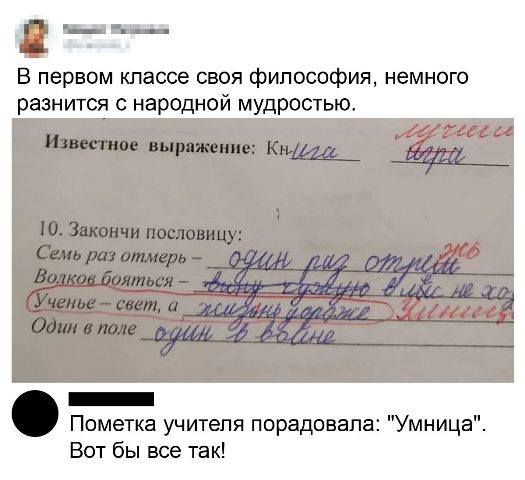 В первом классе своя философия, немного
разнится с народной мудростью.
лучший
Известное выражение: Книга игра
10. Закончи пословицу:
Семь раз отмерь – один раз отрежь
Волков бояться – вину чужую в лес не хо
Ученье – свет, а жизнь дороже Умница
Один в поле один в войне
Пометка учителя порадовала: "Умница".
Вот бы все так!